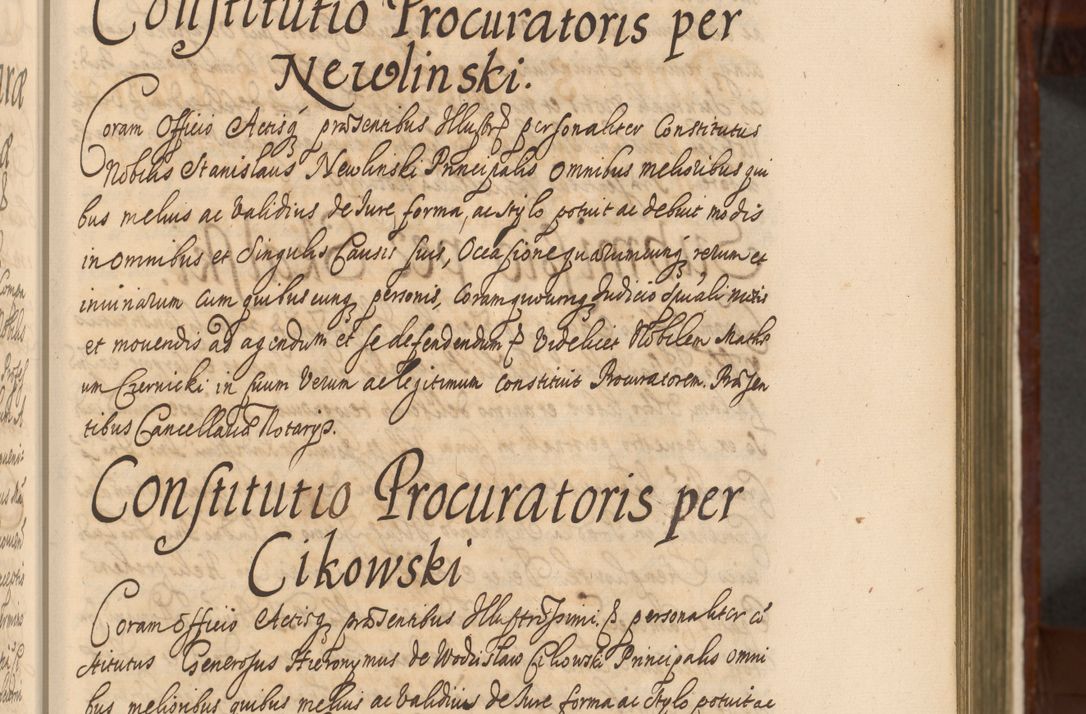 Constitutio Procuratoris per
Newlinski.
Coram Officio Actisq præsentibus Illustr̃ personaliter Constitutus
Nobilis Stanislaus Newlinski Principalis omnibus melioribus qui
bus melius ac validius de Jure forma, ac stylo potuit ac debuit modis
in omnibus et singulis Causis suis, Occasione quarumcunq, rerum et
iniuriarum cum quibuscunq personis, coram quocunq Judicio
et movendis ad agendum et se defendendum Videlicet Nobilem Mathi
um Czernicki in suum Verum ac legitimum constituit Procuratorem. Præsen
tibus Cancellariæ Notarijs.
Constitutio Procuratoris per
Cikowski
Coram Officio Actisq præsentibus Illustrissimi personaliter cõ
stitutus Generosus Hieronymus de Wodzislaw Cikowski Principalis omni
bus melioribus quibus melius ac validius de Jure forma ac stylo potuit ac